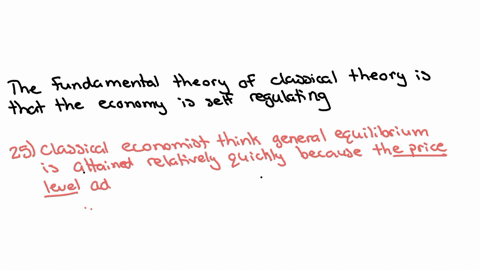 The fundamental theory of classical theory is
that the economy is self regulating
25) Classical economist think general equilibrium
is attained relatively quickly because the price
level ad